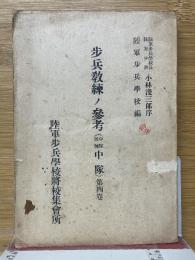 陸軍歩兵學校長
陸軍少將 小林淺三郎序
陸軍歩兵學校編
歩兵敎練ノ參考(中隊)第四卷
陸軍歩兵學校將校集會所